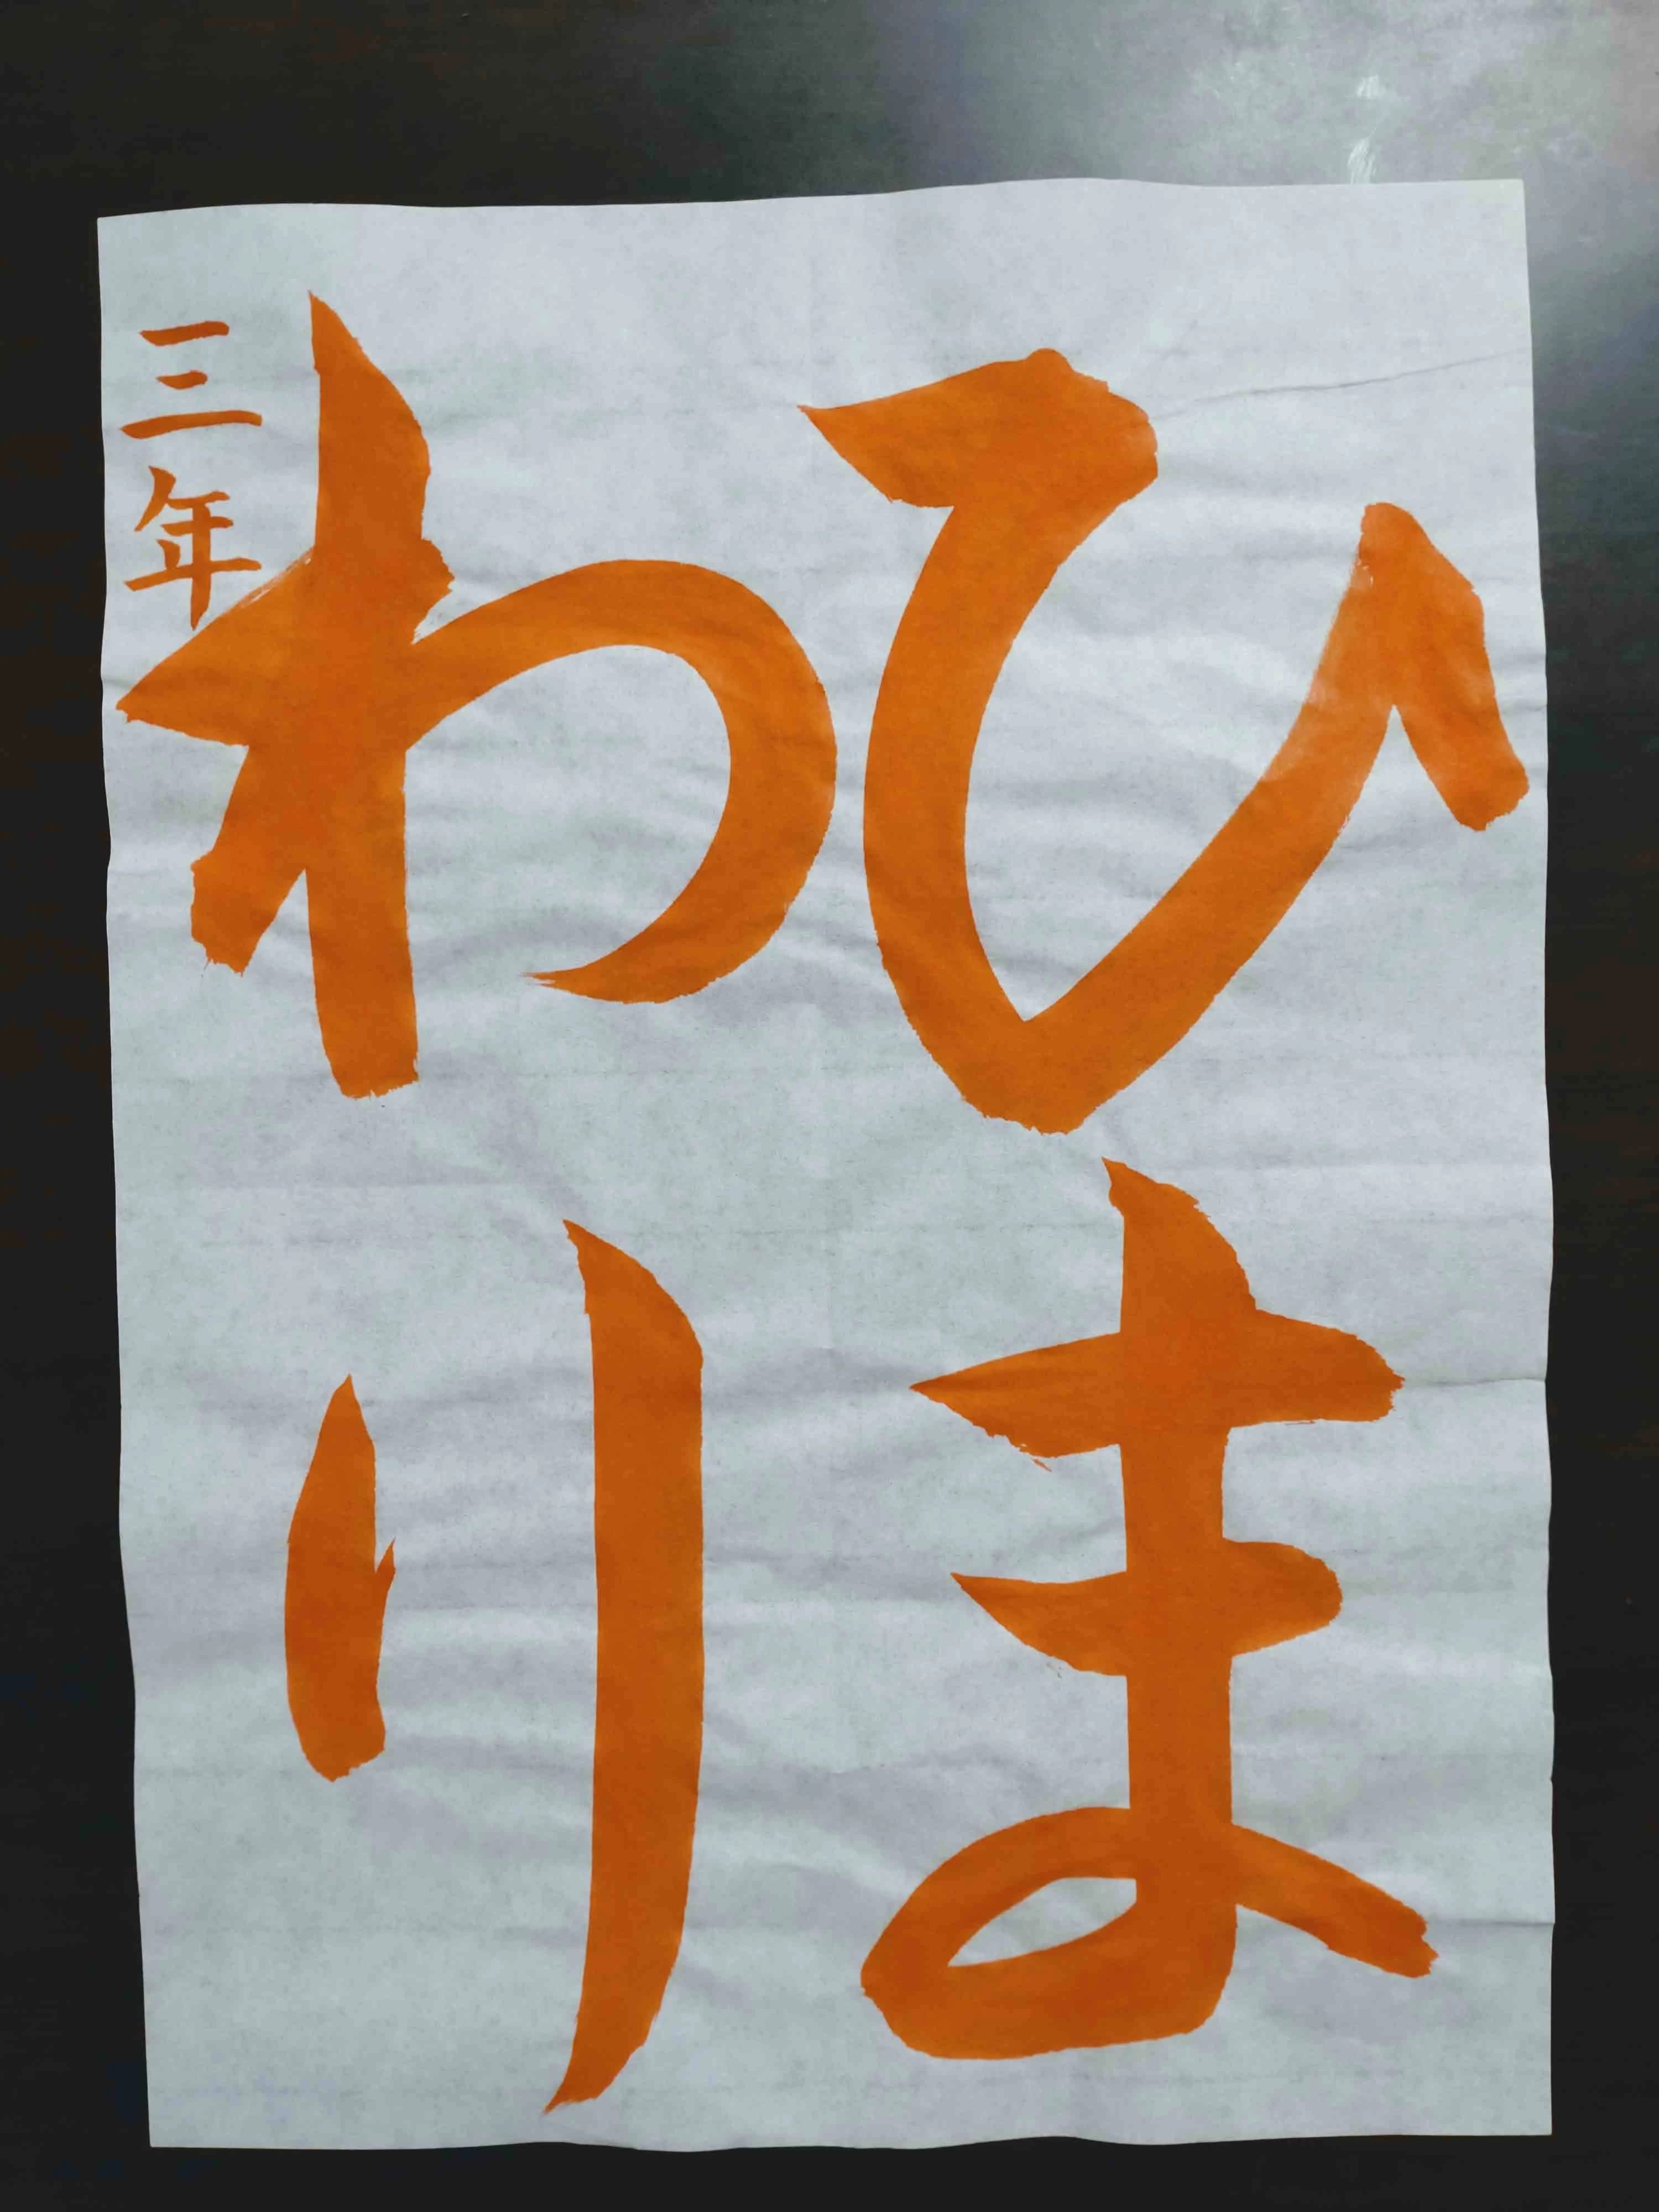 ひま
わり
三年